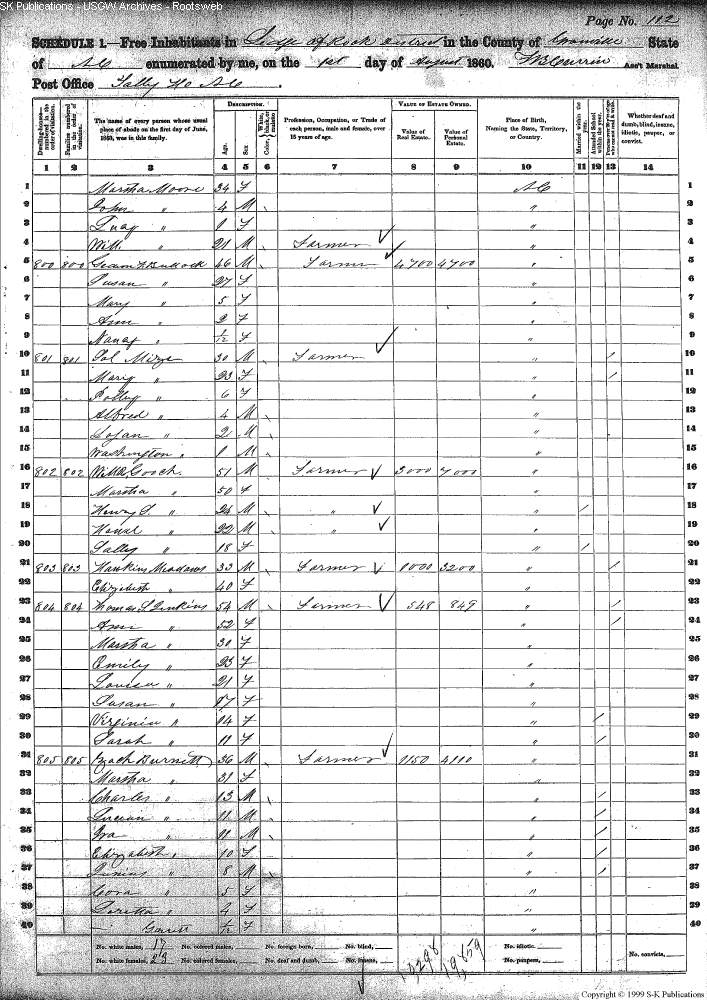 SK Publications - USGW Archives - Rootsweb
Page No. 102
SCHEDULE 1.—Free Inhabitants in Ledge of Rock District in the County of Granville State
of NC enumerated by me, on the 1st day of August 1860. Ass't Marshal
Post Office Tally Ho NC.
Dwelling-houses—numbered in the order of visitation.
Families numbered in the order of visitation.
The name of every person whose usual place of abode on the first day of June, 1860, was in this family.
DESCRIPTION.
Age.
Sex
White, black, or mulatto
Color,
Profession, Occupation, or Trade of each person, male and female, over 15 years of age.
VALUE OF ESTATE OWNED.
Value of Real Estate.
Value of Personal Estate.
Place of Birth, Naming the State, Territory, or Country.
Married within the year.
Attended School within the year.
Whether deaf and dumb, blind, insane, idiotic, pauper, or convict.
1 2 3 4 5 6 7 8 9 10 11 12 13 14
1 Martha Moore 34 F NC 1
2 John " 4 M " 2
3 " 1 F " 3
4 Will. " 21 M Farmer " 4
5 800 800 Bullock 46 M Farmer 4700 4700 " 5
6 Susan " 27 F " 6
7 Mary " 5 F " 7
8 Ann " 2 F " 8
9 " /12 F " 9
10 801 801 Sol 30 M Farmer " / 10
11 Mary " 23 F " / 11
12 Polly " 6 F " 12
13 Alfred " 4 M " 13
14 Logan " 2 M " 14
15 Washington " 1 M " 15
16 802 802 Gooch 51 M Farmer 3000 7000 " 16
17 Martha " 50 F " 17
18 Henry " 24 M " " / 18
19 " 22 M " " 19
20 Sally " 18 F " / 20
21 803 803 Hawkins Meadows 33 M Farmer 1000 3200 " / 21
22 Elizabeth " 40 F " 22
23 804 804 Thomas S Jenkins 54 M Farmer 548 849 " / 23
24 Ann " 52 F " / 24
25 Martha " 30 F " 25
26 Emily " 23 F " 26
27 Louisa " 21 F " 27
28 Susan " 17 F " 28
29 Virginia " 14 F " / 29
30 Sarah " 11 F " / 30
31 805 805 Zach Burnett 36 M Farmer 1150 4110 " 31
32 Martha " 31 F " 32
33 Charles " 13 M " / 33
34 Lucian " 11 M " / 34
35 Ira " 11 M " / 35
36 Elizabeth " 10 F " / 36
37 Junius " 8 M " / 37
38 Cora " 5 F " 38
39 Loretta " 4 F " 39
40 /12 F " 40
No. white males, 17 No. colored males, No. foreign born, No. blind, No. idiotic, No. convicts,
No. white females, 23 No. colored females, No. deaf and dumb, No. insane, 19,859 No. paupers,
Copyright © 1999 S-K Publications